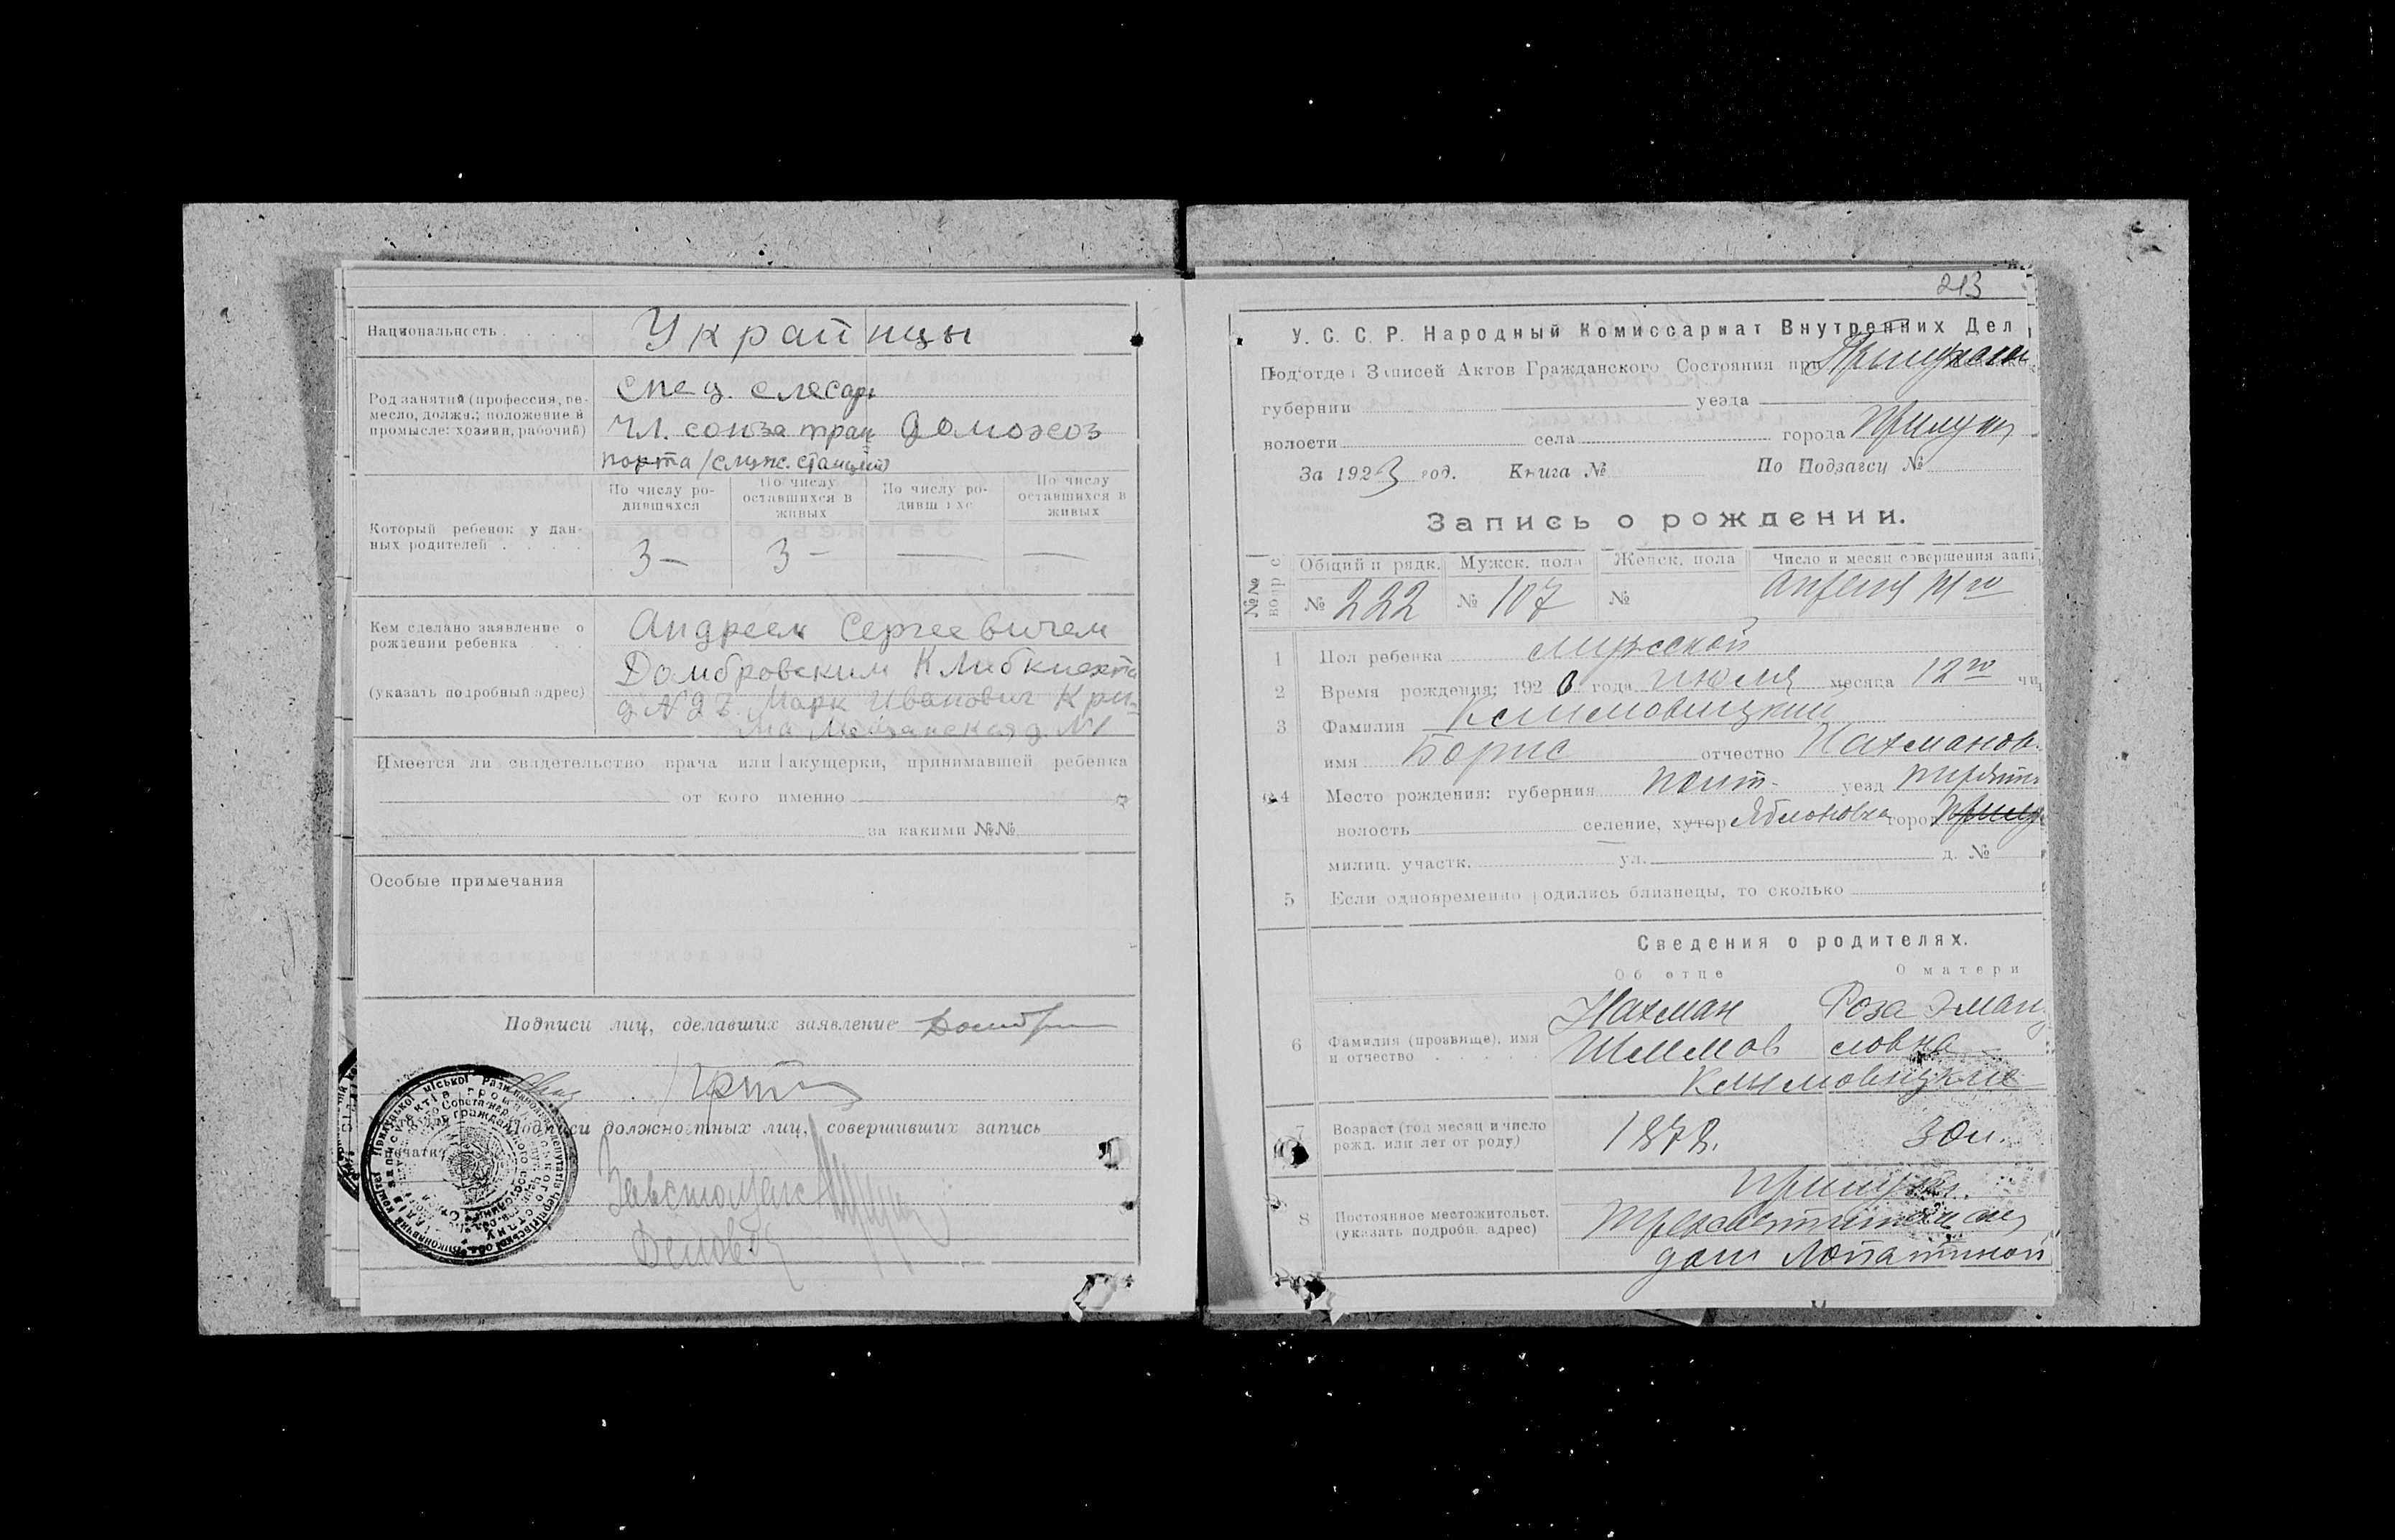 Национальность
Украинцы
Род занятий (профессия, ре-
месло, должн.; положение в
промысле: хозяин, рабочий)
Спец. слесарь
Чл. союза тран Домохоз
порта /служ. станции/
Который ребенок у дан-
ных родителей
По числу ро-
дившихся
По числу
оставшихся в
живых
По числу ро-
дивш хс
По числу
оставшихся в
живых
3 — 3 —
Кем сделано заявление о
рождении ребенка
(указать подробный адрес)
Андреем Сергеевичем
Домбровским К Либкнехта
д. N 27. Марк Иванович Кри-
д. N1
Имеется ли свидетельство врача или акушерки, принимавшей ребенка
от кого именно
за какими №№
Особые примечания
Подписи лиц, сделавших заявление
Подписи должностных лиц, совершивших запись
213
У. С. С. Р. Народный Комиссариат Внутренних Дел
Подотдел Записей Актов Гражданского Состояния при
губернии уезда
волости села города Прилуки
За 1923 год. Книга № По Подзагсу №
Запись о рождении.
№№ Общий п рядк. Мужск. пола Женск. пола Число и месяц совершения запи
№ 222 № 107 № Апреля
1 Пол ребенка мужской
2 Время рождения: 1920 года июля месяца 12го чи
3 Фамилия Климовицкий
имя Борис отчество Нахманов.
4 Место рождения: губерния Полт. уезд Пирятин
волость селение, хутор Яблоновка горо Прилу
милиц. участк. ул. д. №
5 Если одновременно родились близнецы, то сколько
Сведения о родителях.
Об отце О матери
6 Фамилия (прозвище), имя
и отчество
Нахман Роза Эману
Шлемов словна
Климовицкие
7 Возраст (год месяц и число
рожд. или лет от роду)
1878. 30 л.
8 Постоянное местожительст.
(указать подробн. адрес)
Прилуки.
дом Лопатиной